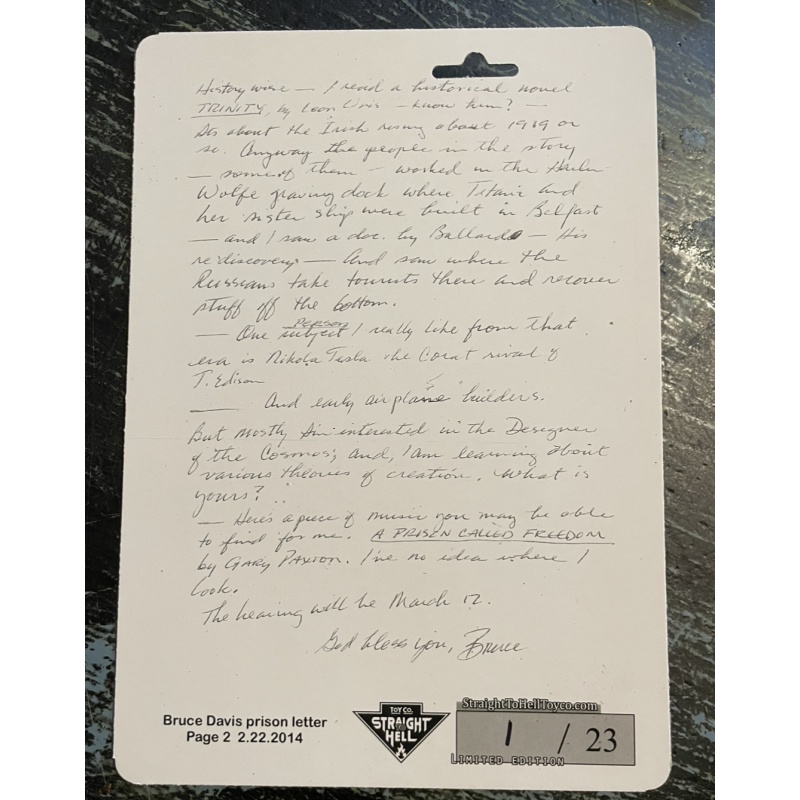 History wise — I read a historical novel
TRINITY, by Leon Uris — know him? —
Its about the Irish rising about 1919 or
so. Anyway the people in the story
— some of them — worked in the
Wolfe graving dock where Titanic and
her sister ship were built in Belfast
— and I saw a doc. by Ballard — His
rediscovery — And saw where the
Russians take tourists there and recover
stuff off the bottom.
— One subject person I really like from that
era is Nikola Tesla the Great rival of
T. Edison
— And early airplane builders.
But mostly I'm interested in the Designer
of the Cosmos; and, I am learning about
various theories of creation. What is
yours?
— Here's a piece of music you may be able
to find for me. A PRISON CALLED FREEDOM
by GARY PAXTON. I've no idea where I
look.
The hearing will be March 12.
God bless you, Bruce
Bruce Davis prison letter
Page 2 2.22.2014
TOY CO.
STRAIGHT
TO
HELL
StraightToHellToyco.com
1 / 23
LIMITED EDITION